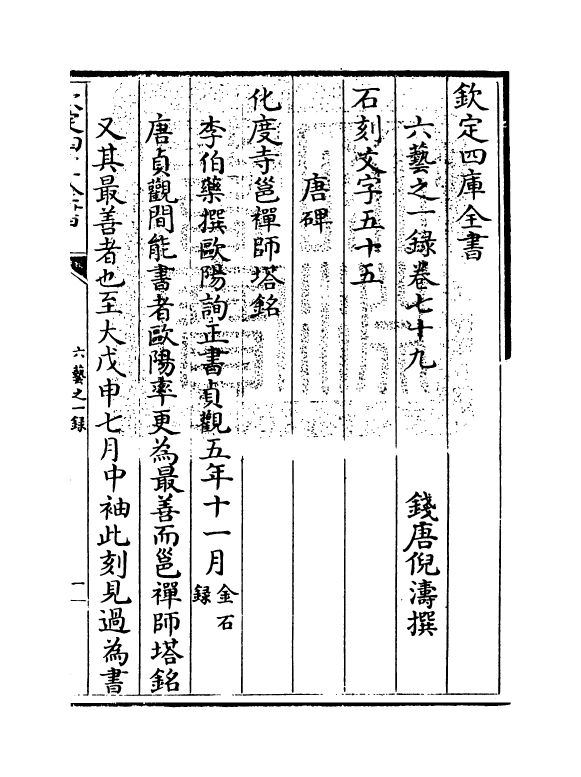 欽定四庫全書
六藝之一錄卷七十九
錢唐倪濤撰
石刻文字五十五
唐碑
化度寺邕禪師塔銘
李伯藥撰歐陽詢正書貞觀五年十一月金石錄
唐貞觀間能書者歐陽率更為最善而邕禪師塔銘
又其最善者也至大戊申七月中袖此刻見過為書
六藝之一録